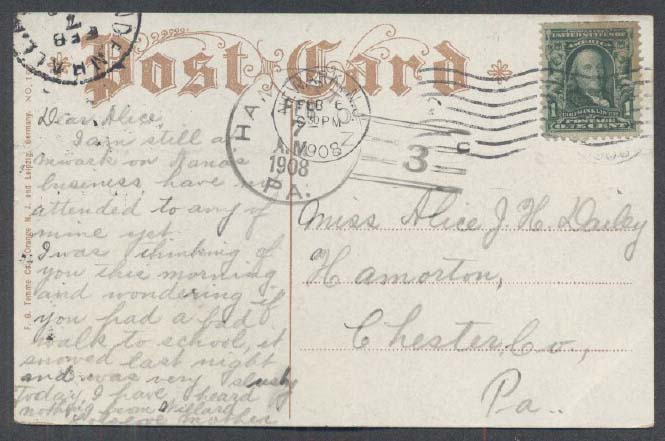 Post Card
FEB
7
HA
FEB 6
7
8 30 PM
A.M.
1908
1908
PA.
3
UNITED STATES OF
AMERICA
POSTAGE
ONE CENT
Dear Alice,
I am still at
work on Nanas
business have not
attended to any of
mine yet.
I was thinking of
you this morning
and wondering if
you had a bad
walk to school, it
snowed last night
and was very slushy
Today, I have heard
nothing from Willard
Mother
Miss Alice J. H. Dailey
Hamorton,
Chester Co,
Pa..
F. G. Temme Co., Orange N. J. and Leipzig, Germany. No.